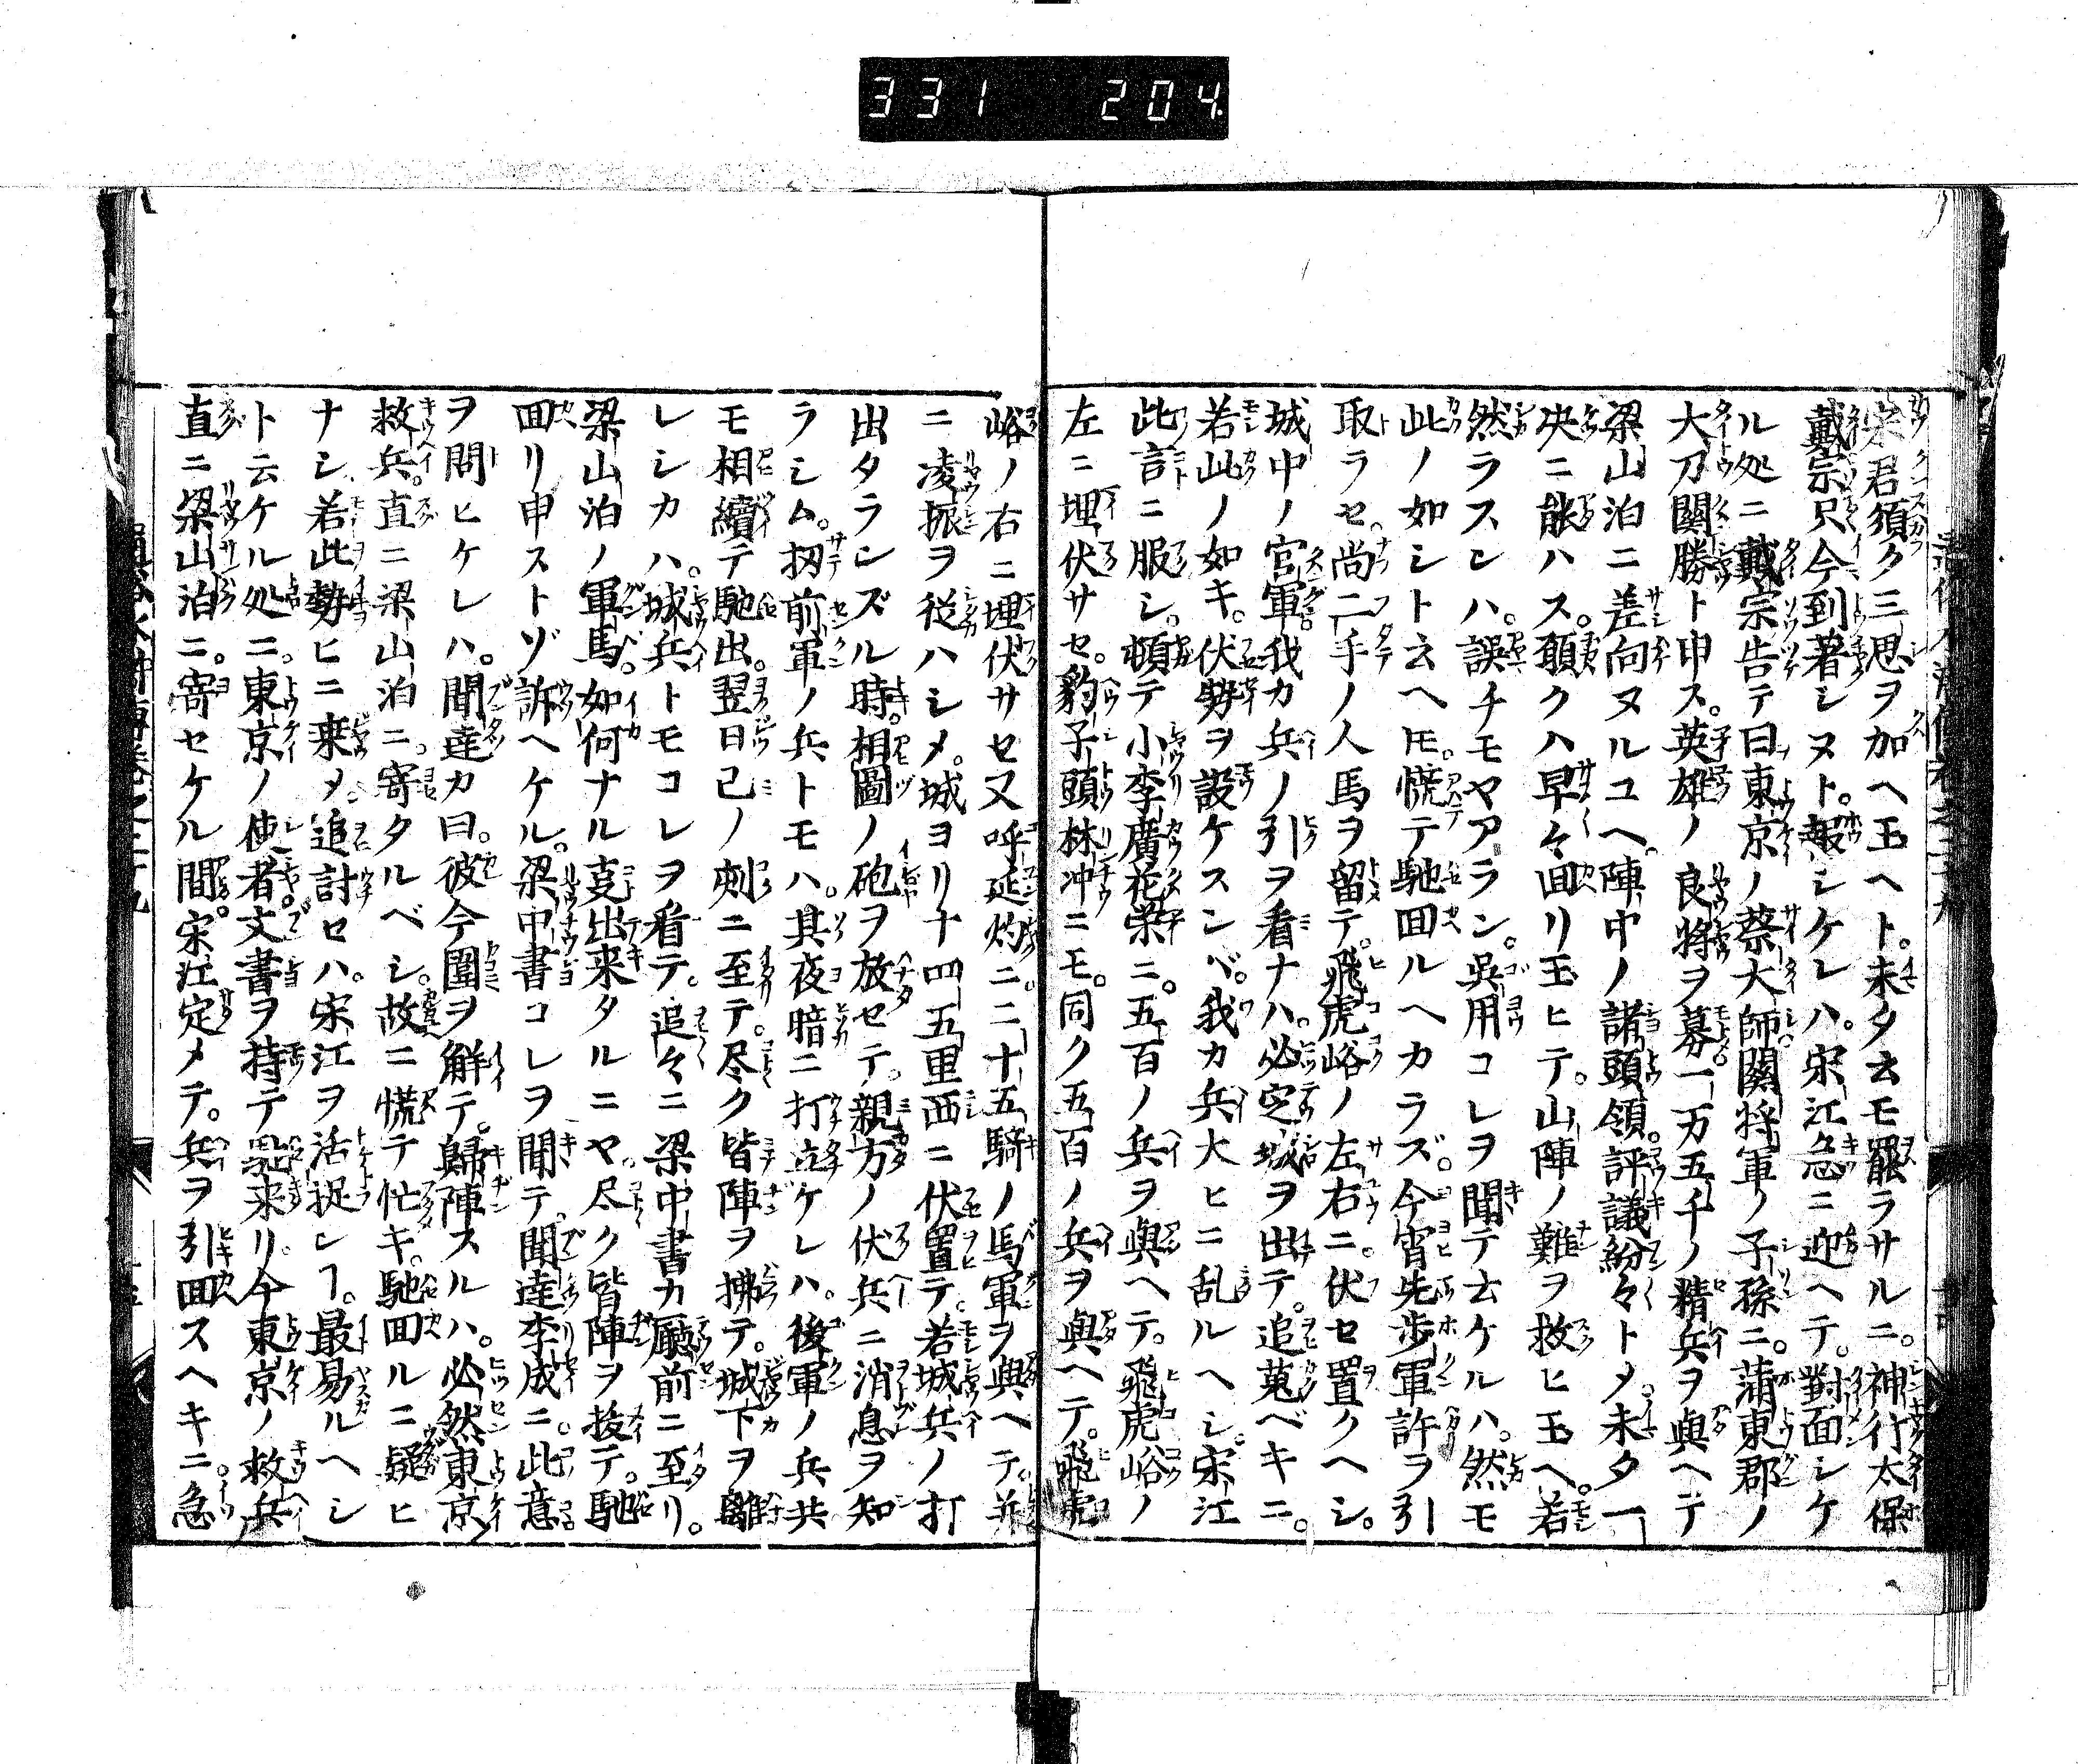 331 204
宋君須ク三思ヲ加ヘ玉ヘト。未タ云モ罷ラサルニ。神行太保
戴宗只今到著シヌト。報シケレハ。宋江急ニ迎ヘテ。對面シケ
ル処ニ戴宗告テ曰東京ノ蔡大師關將軍ノ子孫ニ。蒲東郡ノ
大刀關勝ト申ス。英雄ノ良將ヲ募一万五千ノ精兵ヲ與ヘテ
梁山泊ニ差向ヌルユヘ。陣中ノ諸頭領。評議紛々トメ未タ一
决ニ能ハス。願クハ早々回リ玉ヒテ。山陣ノ難ヲ救ヒ玉ヘ。若
然ラスンハ。誤チモヤアラン。呉用コレヲ聞テ云ケルハ。然モ
此ノ如シト云ヘ𪜈。慌テ馳回ルヘカラズ。今宵先歩軍許ヲ引
取ラセ。尚二手ノ人馬ヲ留テ。飛虎峪ノ左右ニ。伏セ置クヘシ。
城中ノ官軍。我カ兵ノ引ヲ看ナハ。必定城ヲ出テ。追蒐ベキニ。
若此ノ如キ。伏勢ヲ設ケスンバ。我カ兵大ヒニ乱ルヘシ。宋江
此言ニ服シ。頓テ小李廣花榮ニ。五百ノ兵ヲ與ヘテ。飛虎峪ノ
左ニ埋伏サセ。豹子頭林冲ニモ。同ク五百ノ兵ヲ與ヘテ。飛虎
峪ノ右ニ埋伏サセ又呼延灼ニ。二十五騎ノ馬軍ヲ與ヘテ。并
ニ凌振ヲ従ハシメ。城ヨリ十四五里西ニ伏置テ。若城兵ノ打
出タランズル時。相圖ノ砲ヲ放セテ。親方ノ伏兵ニ消息ヲ知
ラシム。扨前軍ノ兵トモハ。其夜暗ニ打立ケレハ。後軍ノ兵共
モ相續テ馳出。翌日巳ノ刻ニ至テ。尽ク皆陣ヲ拂テ。城下ヲ離
レシカハ。城兵トモコレヲ看テ。追々ニ梁中書カ廳前ニ至リ。
梁山泊ノ軍馬。如何ナル㕝出来タルニヤ。尽ク皆陣ヲ抜テ。馳
回リ申ストゾ訴ヘケル。梁中書コレヲ聞テ。聞達李成ニ。此意
ヲ問ヒケレハ。聞達カ曰。彼今圍ヲ解テ。歸陣スルハ。必然東京
救兵。直ニ梁山泊ニ。寄タルベシ。故ニ慌テ忙キ。馳回ルニ疑ヒ
ナシ若此勢ヒニ乗メ。追討セハ。宋江ヲ活捉レヿ。最易ルヘシ
ト云ケル処ニ。東京ノ使者。文書ヲ持テ馳来リ。今東京ノ救兵
直ニ梁山泊ニ。寄セケル間。宋江定メテ。兵ヲ引回スヘキニ。急